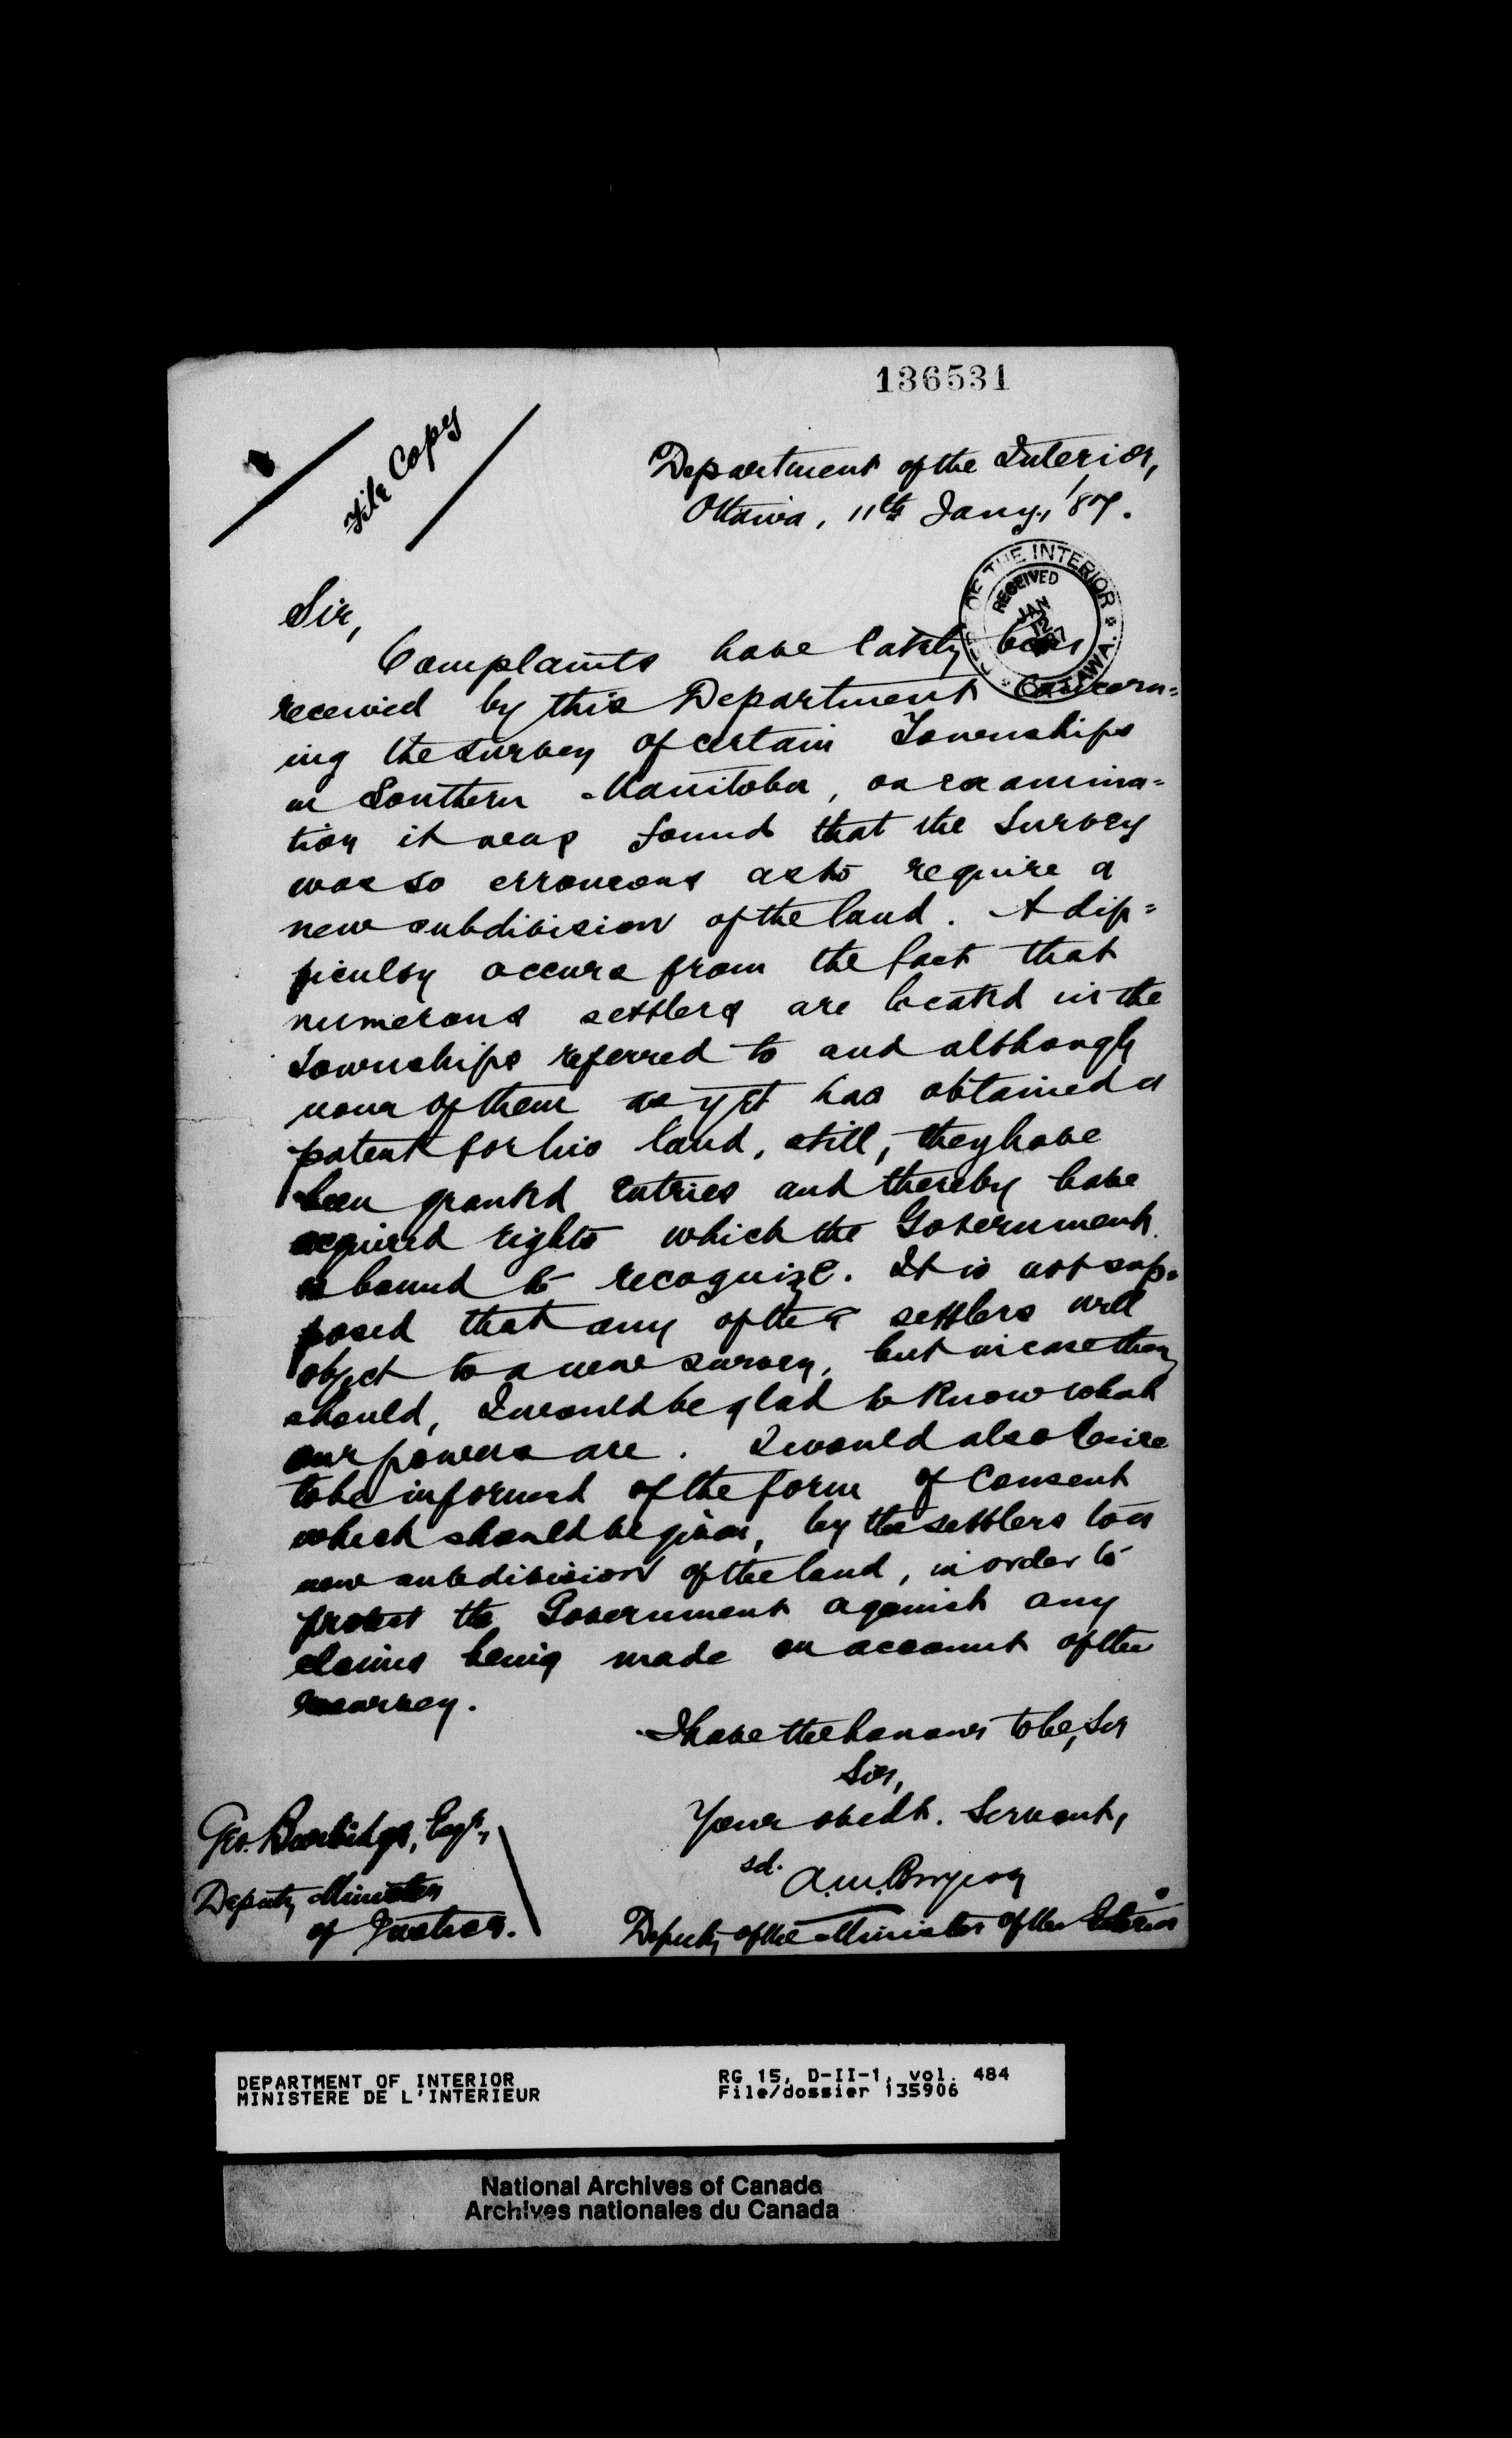 136531
File Copy
Department of the Interior,
Ottawa, 11th Jany., '87.
DEPT. OF THE INTERIOR
RECEIVED
JAN
12
1887
OTTAWA.
Sir,
Complaints have lately been
received by this Department concern=
ing the survey of certain Townships
in Southern Manitoba, on examina=
tion it was found that the survey
was so erroneous as to require a
new subdivision of the land. A dif=
ficulty occurs from the fact that
numerous settlers are located in the
Townships referred to and although
none of them as yet has obtained a
patent for his land, still, they have
been granted entries and thereby have
acquired rights which the Government
is bound to recognize. It is not sup=
posed that any of the settlers will
object to a new survey, but in case they
should, I would be glad to know what
our powers are. I would also desire
to be informed of the form of consent
which should be given, by the settlers to a
new subdivision of the land, in order to
protect the Government against any
claims being made on account of the
resurvey.
I have the honour to be, Sir
Sir,
Your obedt. Servant,
sd. A.M. Burgess
Deputy of the Minister of the Interior
Geo. Burbidge, Esqr.,
Deputy Minister
of Justice.
DEPARTMENT OF INTERIOR RG 15, D-II-1, vol. 484
MINISTERE DE L'INTERIEUR File/dossier 135906
National Archives of Canada
Archives nationales du Canada